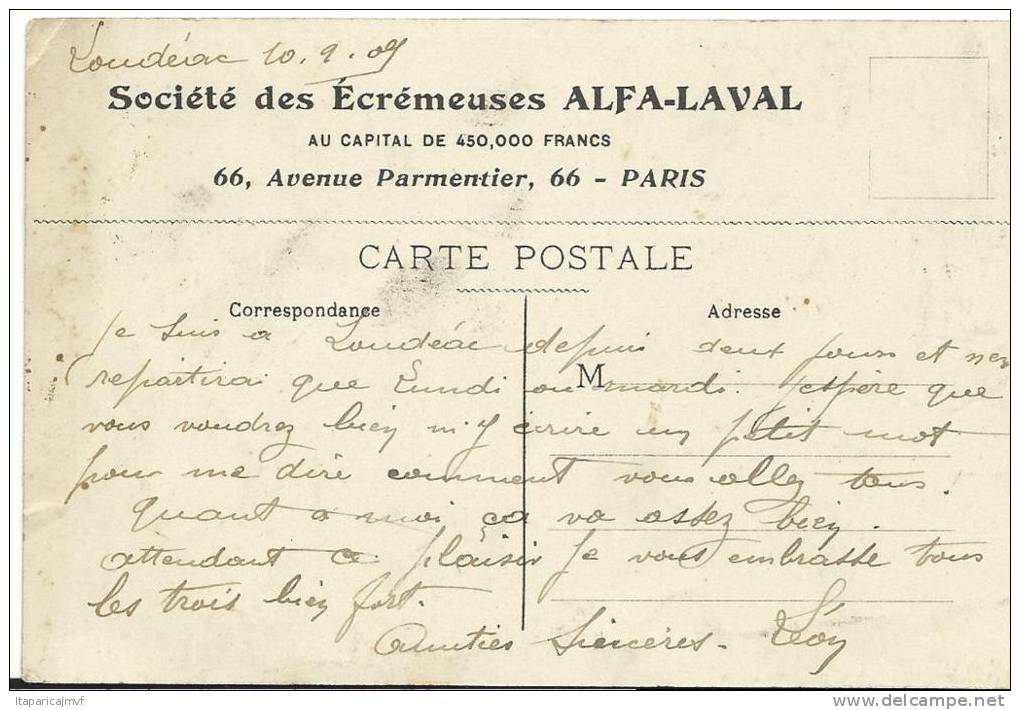 Loudéac 10.9.09
Société des Écrémeuses ALFA-LAVAL
AU CAPITAL DE 450,000 FRANCS
66, Avenue Parmentier, 66 - PARIS
CARTE POSTALE
Correspondance
Adresse
M
Je suis a Loudéac depuis deux jours et n'en
repartirai que Lundi ou mardi. J'espère que
vous voudrez bien m'y écrire un petit mot
pour me dire comment vous allez tous.
Quant a moi, ça va assez bien.
attendant ce plaisir je vous embrasse tous
les trois bien fort.
Amitiés Sincères. Léon
ltaparicajmvf
delcampe.net